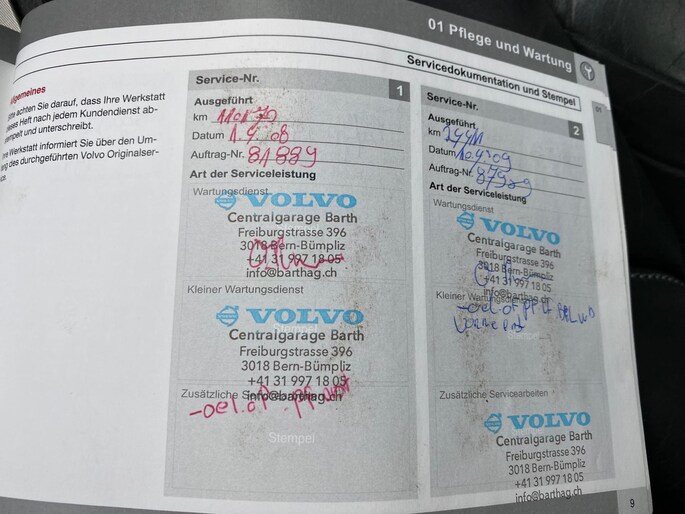 01 Pflege und Wartung
Servicedokumentation und Stempel
Allgemeines
achten Sie darauf, dass Ihre Werkstatt
dieses Heft nach jedem Kundendienst ab-
stempelt und unterschreibt.
Ihre Werkstatt informiert Sie über den Um-
fang des durchgeführten Volvo Originalser-
vice.
Service-Nr. 1
Ausgeführt
km
Datum 1.4.08
Auftrag-Nr. 81889
Art der Serviceleistung
Wartungsdienst
VOLVO
Centralgarage Barth
Freiburgstrasse 396
3018 Bern-Bümpliz
+41 31 997 18 05
info@barthag.ch
Kleiner Wartungsdienst
VOLVO
Stempel
Centralgarage Barth
Freiburgstrasse 396
3018 Bern-Bümpliz
+41 31 997 18 05
Zusätzliche
info@barthag.ch
-oel.of
Stempel
Service-Nr. 2
Ausgeführt
km
Datum 10.4.09
Auftrag-Nr.
Art der Serviceleistung
Wartungsdienst
VOLVO
Centralgarage Barth
Freiburgstrasse 396
3018 Bern-Bümpliz
+41 31 997 18 05
info@barthag.ch
Kleiner Wartungsdienst
-oel.of
Zusätzliche Servicearbeiten
VOLVO
Centralgarage Barth
Freiburgstrasse 396
3018 Bern-Bümpliz
+41 31 997 18 05
info@barthag.ch
01
9